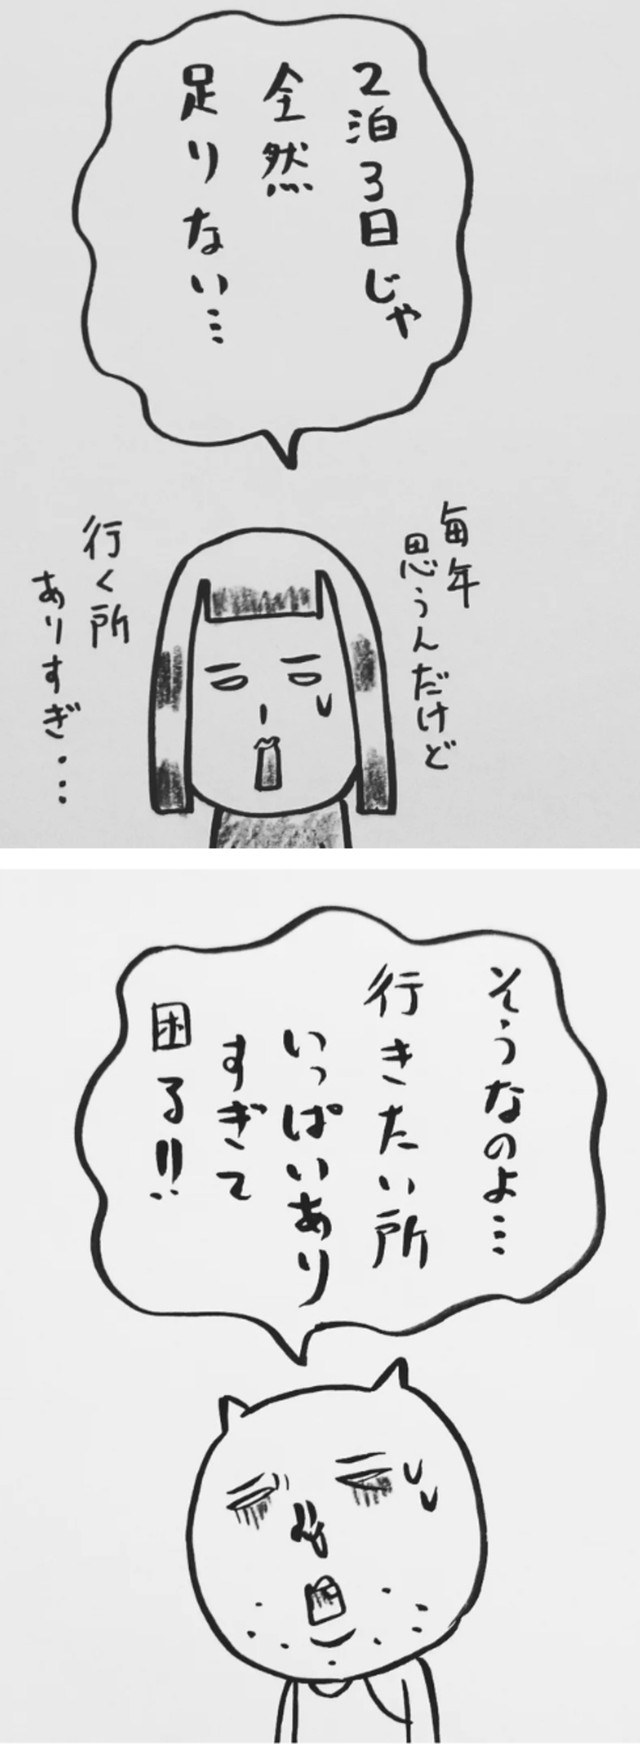 2泊3日じゃ
全然
足りない…
毎年
思うんだけど
行く所
ありすぎ…
そうなのよ…
行きたい所
いっぱいあり
すぎて
困る!!